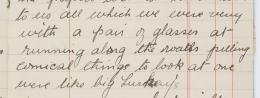 to us all which we were very
with a pair of glasses at
running along the roads pulling
comical things to look at one
were like big Turkeys